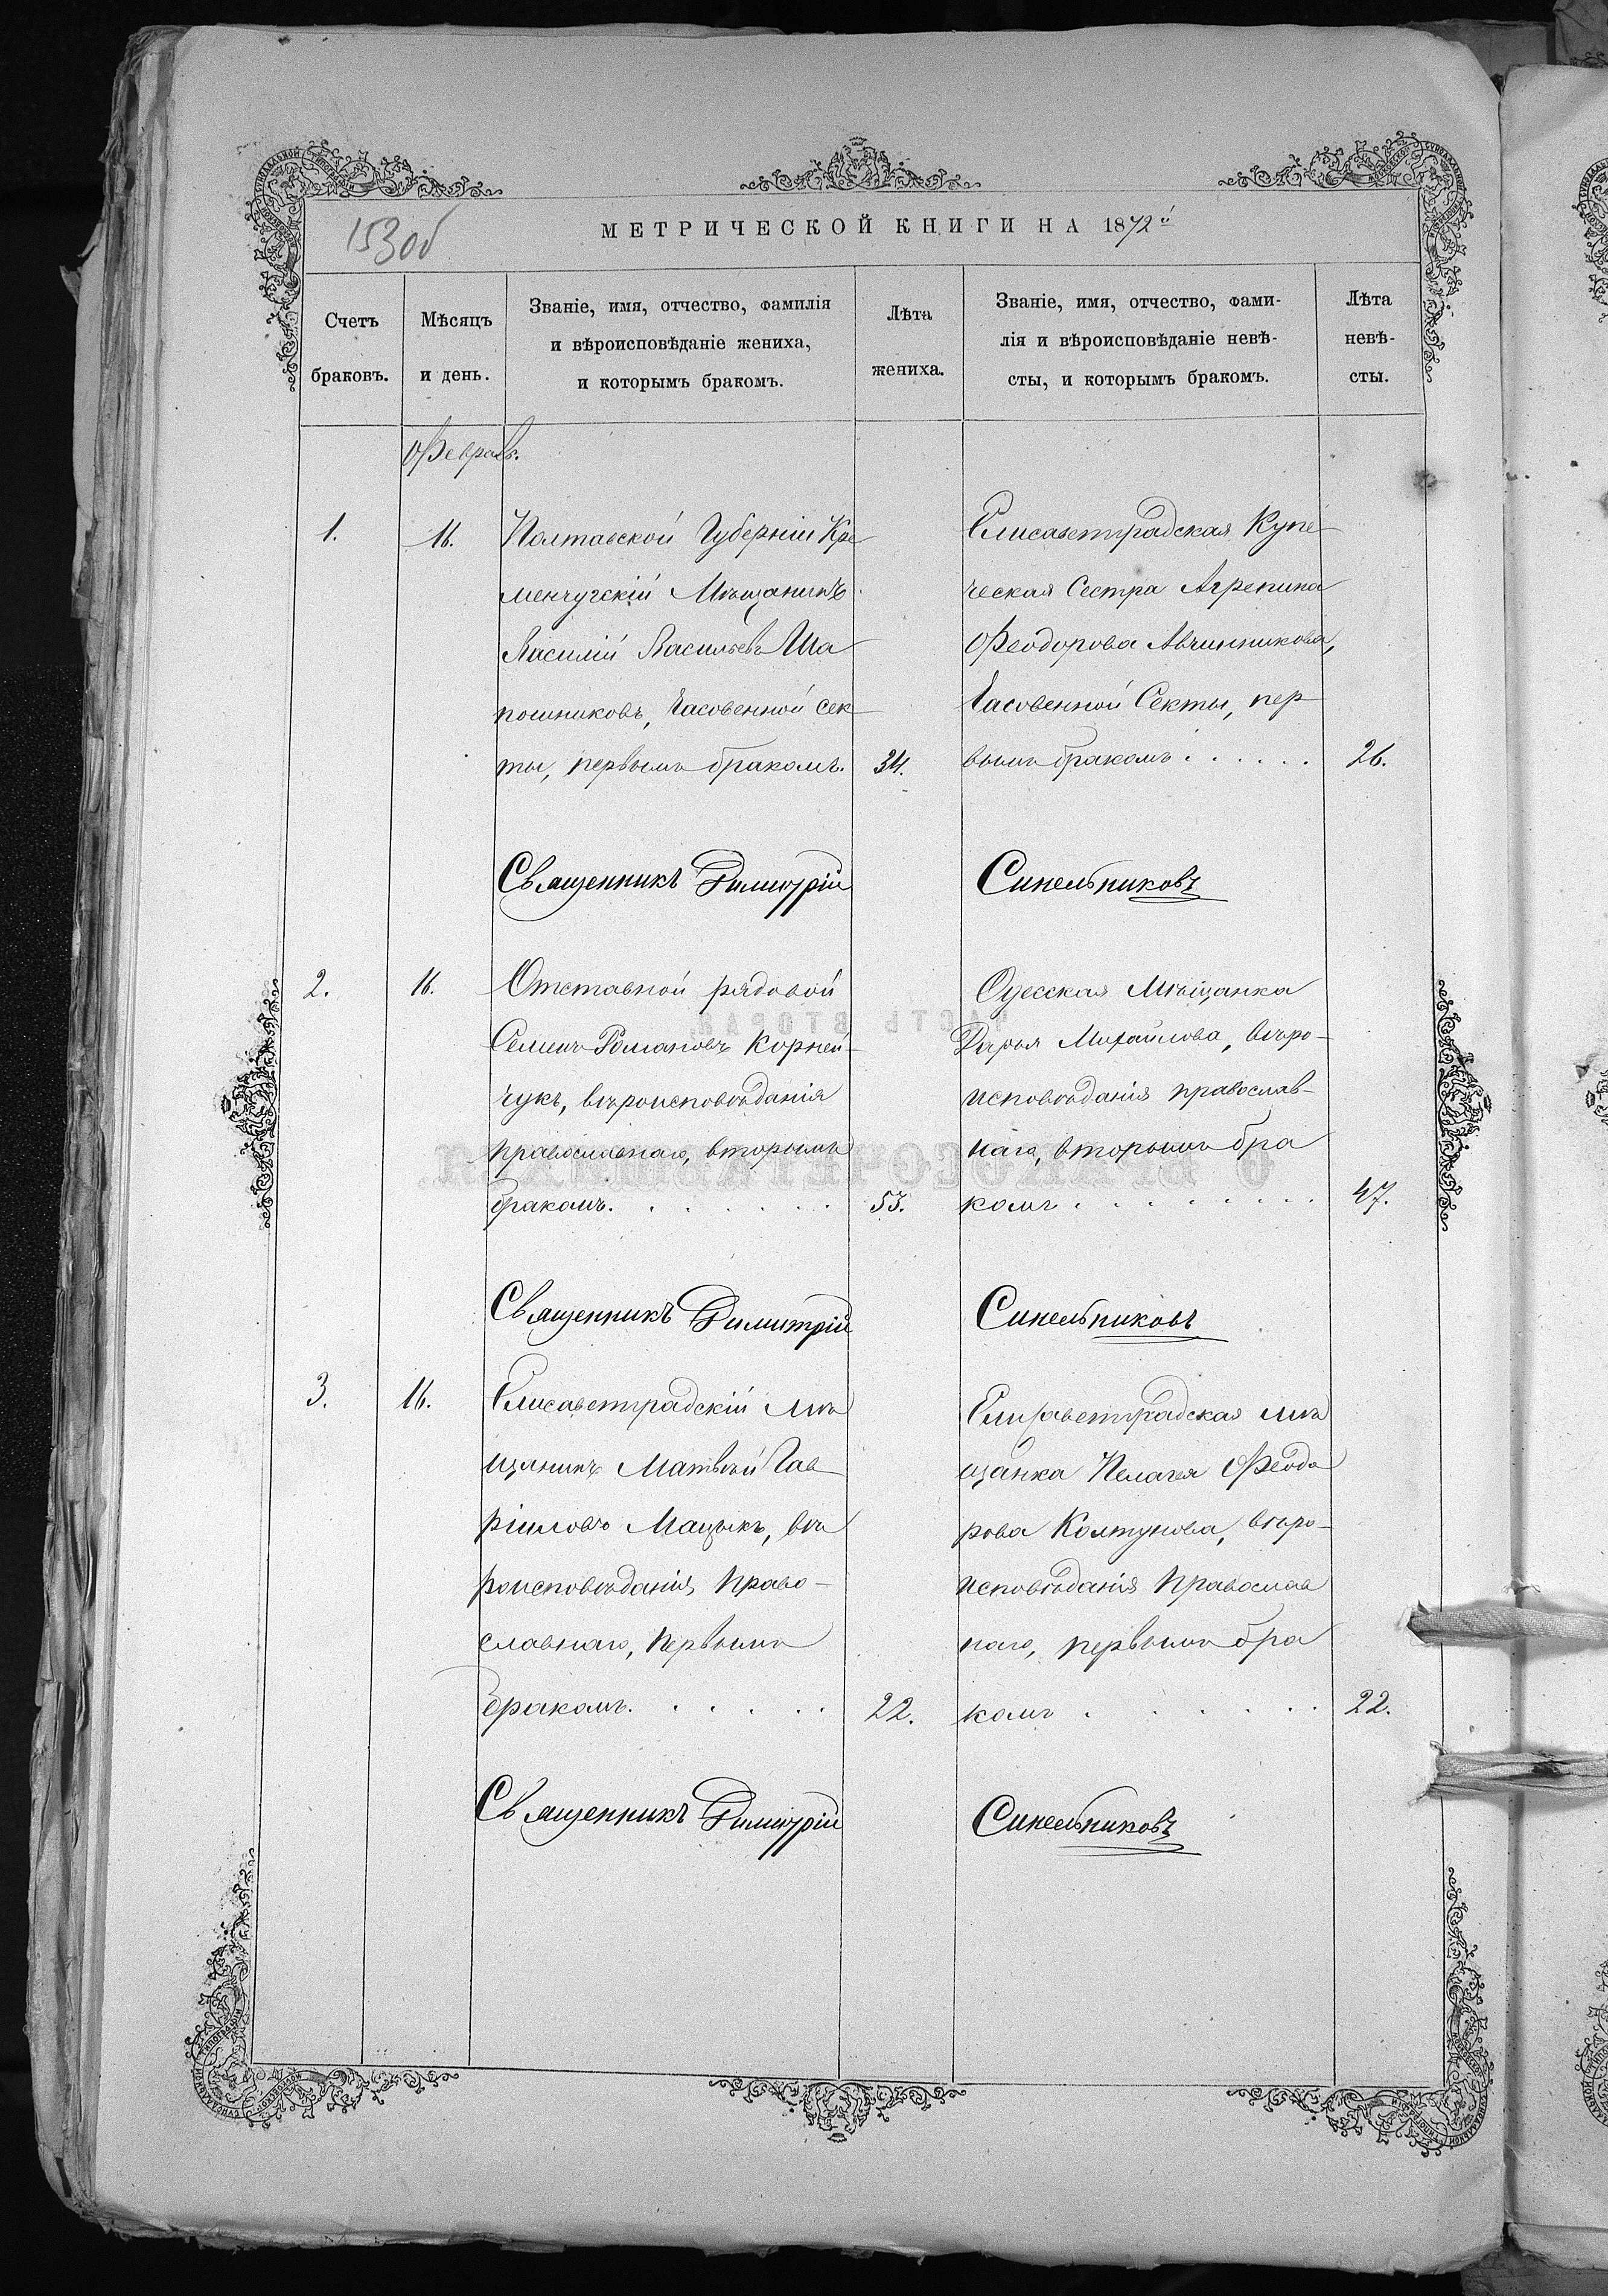 153об
МЕТРИЧЕСКОЙ КНИГИ НА 1872й
Счетъ
браковъ.
Мѣсяцъ
и день.
Званіе, имя, отчество, фамилія
и вѣроисповѣданіе жениха,
и которымъ бракомъ.
Лѣта
жениха.
Званіе, имя, отчество, фами-
лія и вѣроисповѣданіе невѣ-
сты, и которымъ бракомъ.
Лѣта
невѣ-
сты.
Февраль.
1.
16.
Полтавской Губерніи Кре
менчугскій Мѣщанинъ
Василій Васильевъ Ша
пошниковъ, Часовенной сек
ты, первымъ бракомъ.
34.
Елисаветградская Купе
ческая Сестра Агрепина
Феодорова Авчинникова,
Часовенной Секты, пер
вымъ бракомъ . . . . . .
26.
Священникъ Димитрій
Синельниковъ
2.
16.
Отставной рядовой
Семенъ Романовъ Корней-
чукъ, вѣроисповѣданія
православнаго, вторымъ
бракомъ. . . . . . .
53.
Одесская Мѣщанка
Дарья Михайлова, вѣро-
исповѣданія православ-
наго, вторымъ бра
комъ . . . . . . . .
47.
Священникъ Димитрій
Синельниковъ
3.
16.
Елисаветградскій Мѣ
щанинъ Матвѣй Гав
ріиловъ Мацыкъ, вѣ
роисповѣданія право-
славнаго, первымъ
бракомъ. . . . . .
22.
Елисаветградская мѣ
щанка Пелагея Феодо
рова Колтунова, вѣро-
исповѣданія Православ
наго, первымъ бра
комъ . . . . . .
22.
Священникъ Димитрій
Синельниковъ